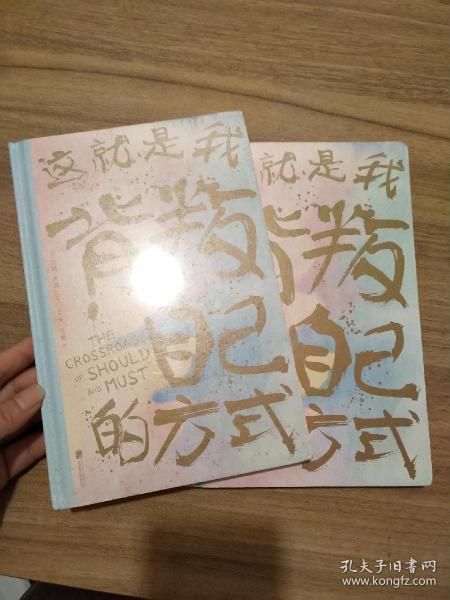 这就是我
背叛
自己
的方式
THE
CROSSROADS
OF SHOULD
AND MUST
就是我
背叛
自己
方式
孔夫子旧书网
www.kongfz.com